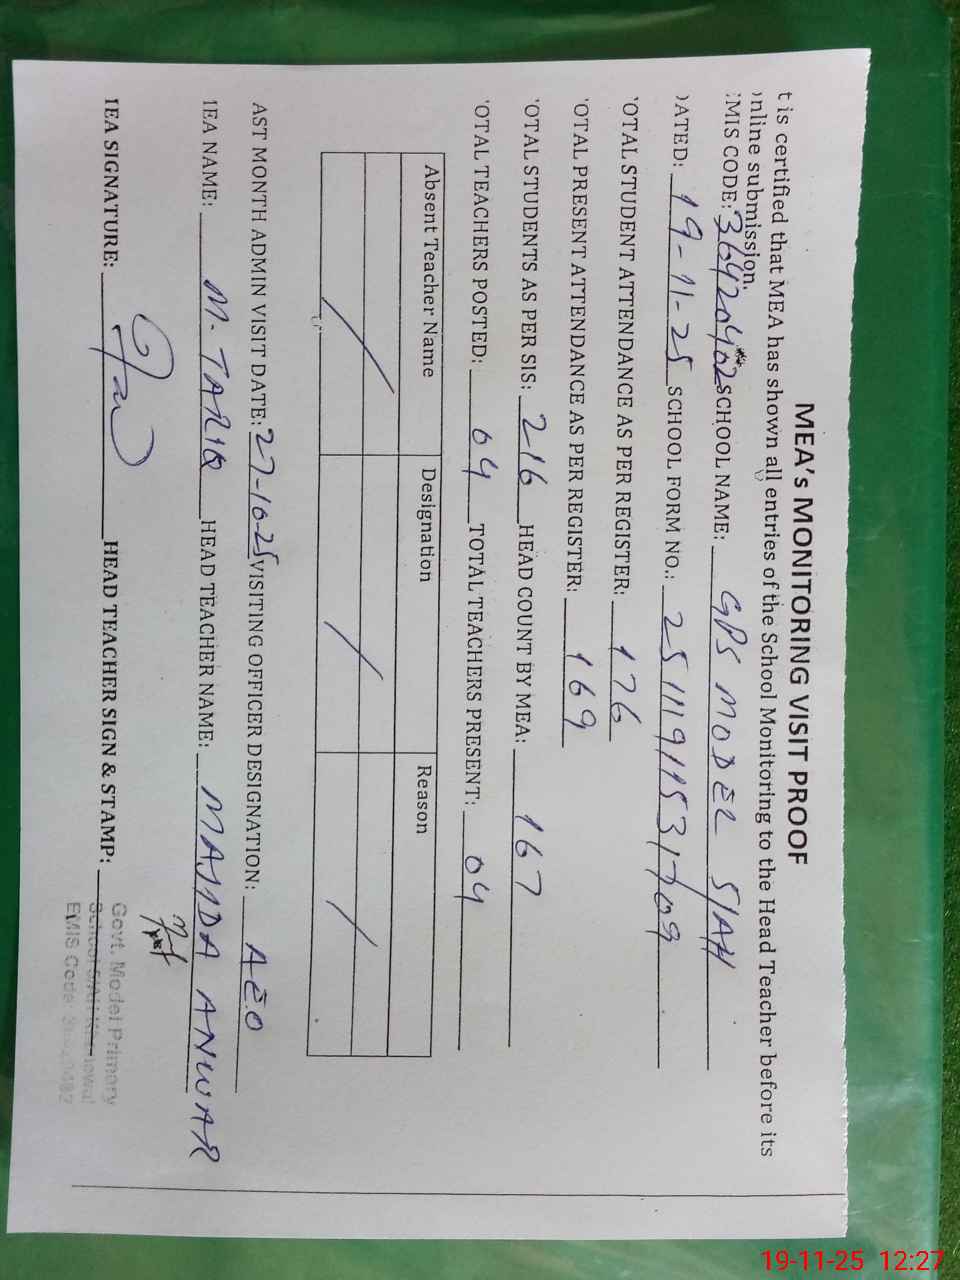 MEA's MONITORING VISIT PROOF
t is certified that MEA has shown all entries of the School Monitoring to the Head Teacher before its
nline submission.
MIS CODE: 36420402 SCHOOL NAME: GPS MODEL 5/AH
ATED: 19-11-25 SCHOOL FORM NO.: 25111911531709
OTAL STUDENT ATTENDANCE AS PER REGISTER: 176
OTAL PRESENT ATTENDANCE AS PER REGISTER: 169
OTAL STUDENTS AS PER SIS: 216 HEAD COUNT BY MEA: 167
OTAL TEACHERS POSTED: 04 TOTAL TEACHERS PRESENT: 04
Absent Teacher Name Designation Reason
AST MONTH ADMIN VISIT DATE: 27-10-25 VISITING OFFICER DESIGNATION: AEO
MEA NAME: M. TARIQ HEAD TEACHER NAME: MAJIDA ANWAR
MEA SIGNATURE: HEAD TEACHER SIGN & STAMP:
Govt. Model Primary
School 5/AH
EMIS Code:
19-11-25 12:27